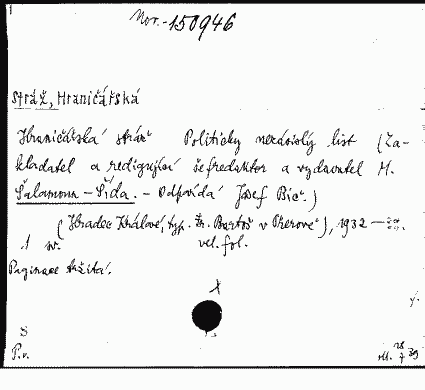 Mor.-150946
Stráž, Hraničářská
Hraničářská stráž Politicky nezávislý list (Za-
kladatel a redigující šéfredaktor a vydavatel M.
Šalamoun-Šída. - Odpovídá Josef Bič.)
(Hradec Králové, typ. Fr. Bartoš v Přerově), 1932-
1 sv. vel. fol.
Paginace tržitá.
X
8
P.v.
28
7 39